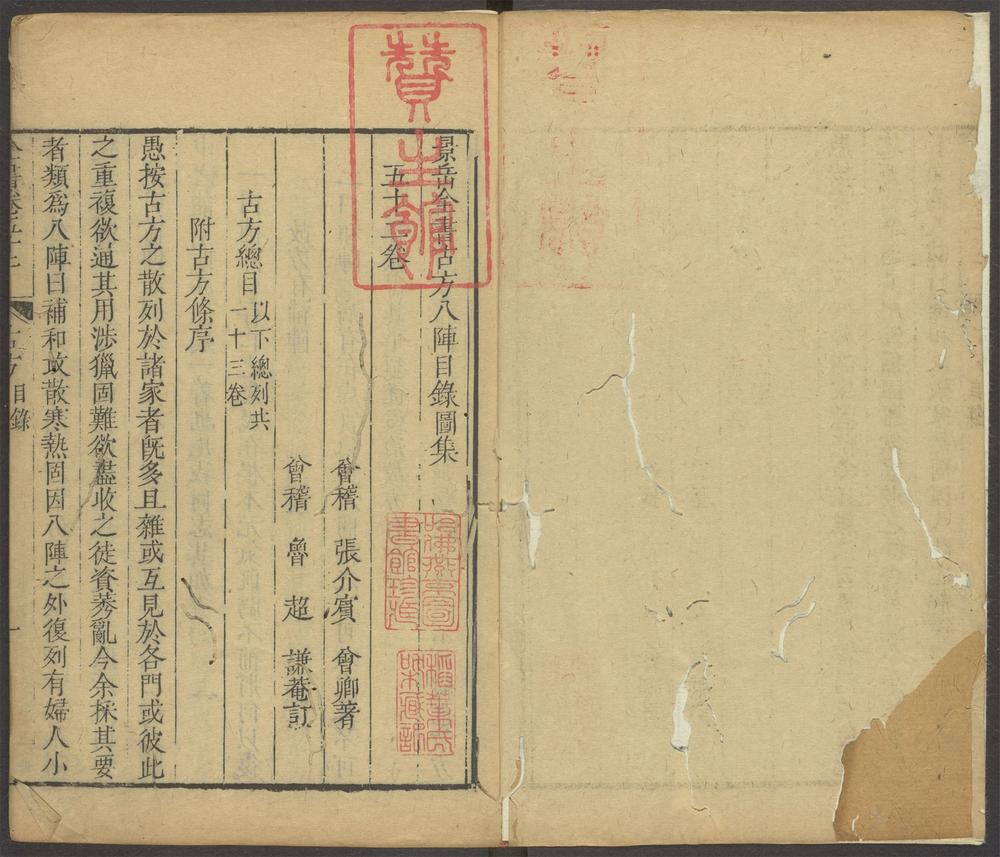 景岳全書古方八陣目錄圖集
五十二卷
會稽 張介賓 會卿著
會稽 魯 超 謙菴訂
古方總目 以下總列共一十三卷
附古方條序
愚按古方之散列於諸家者旣多且雜或互見於各門或彼此
之重複欲通其用涉獵固難欲盡收之徒資莠亂今余採其要
者類爲八陣曰補和攻散寒熱固因八陣之外復列有婦人小
目錄
一
贊生館
哈佛燕京
書館珍
稻葉氏